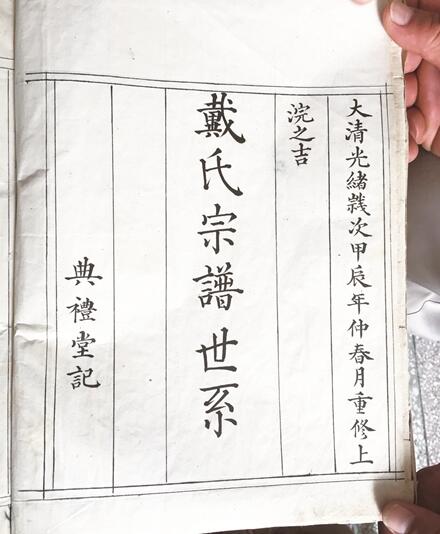 大清光緒歲次甲辰年仲春月重修上
浣之吉
戴氏宗譜世系
典禮堂記